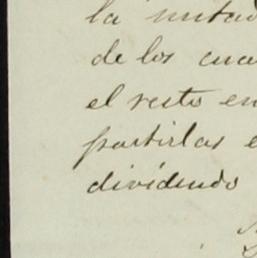 la mitad
de los cua
el resto en
partirlas e
dividendo